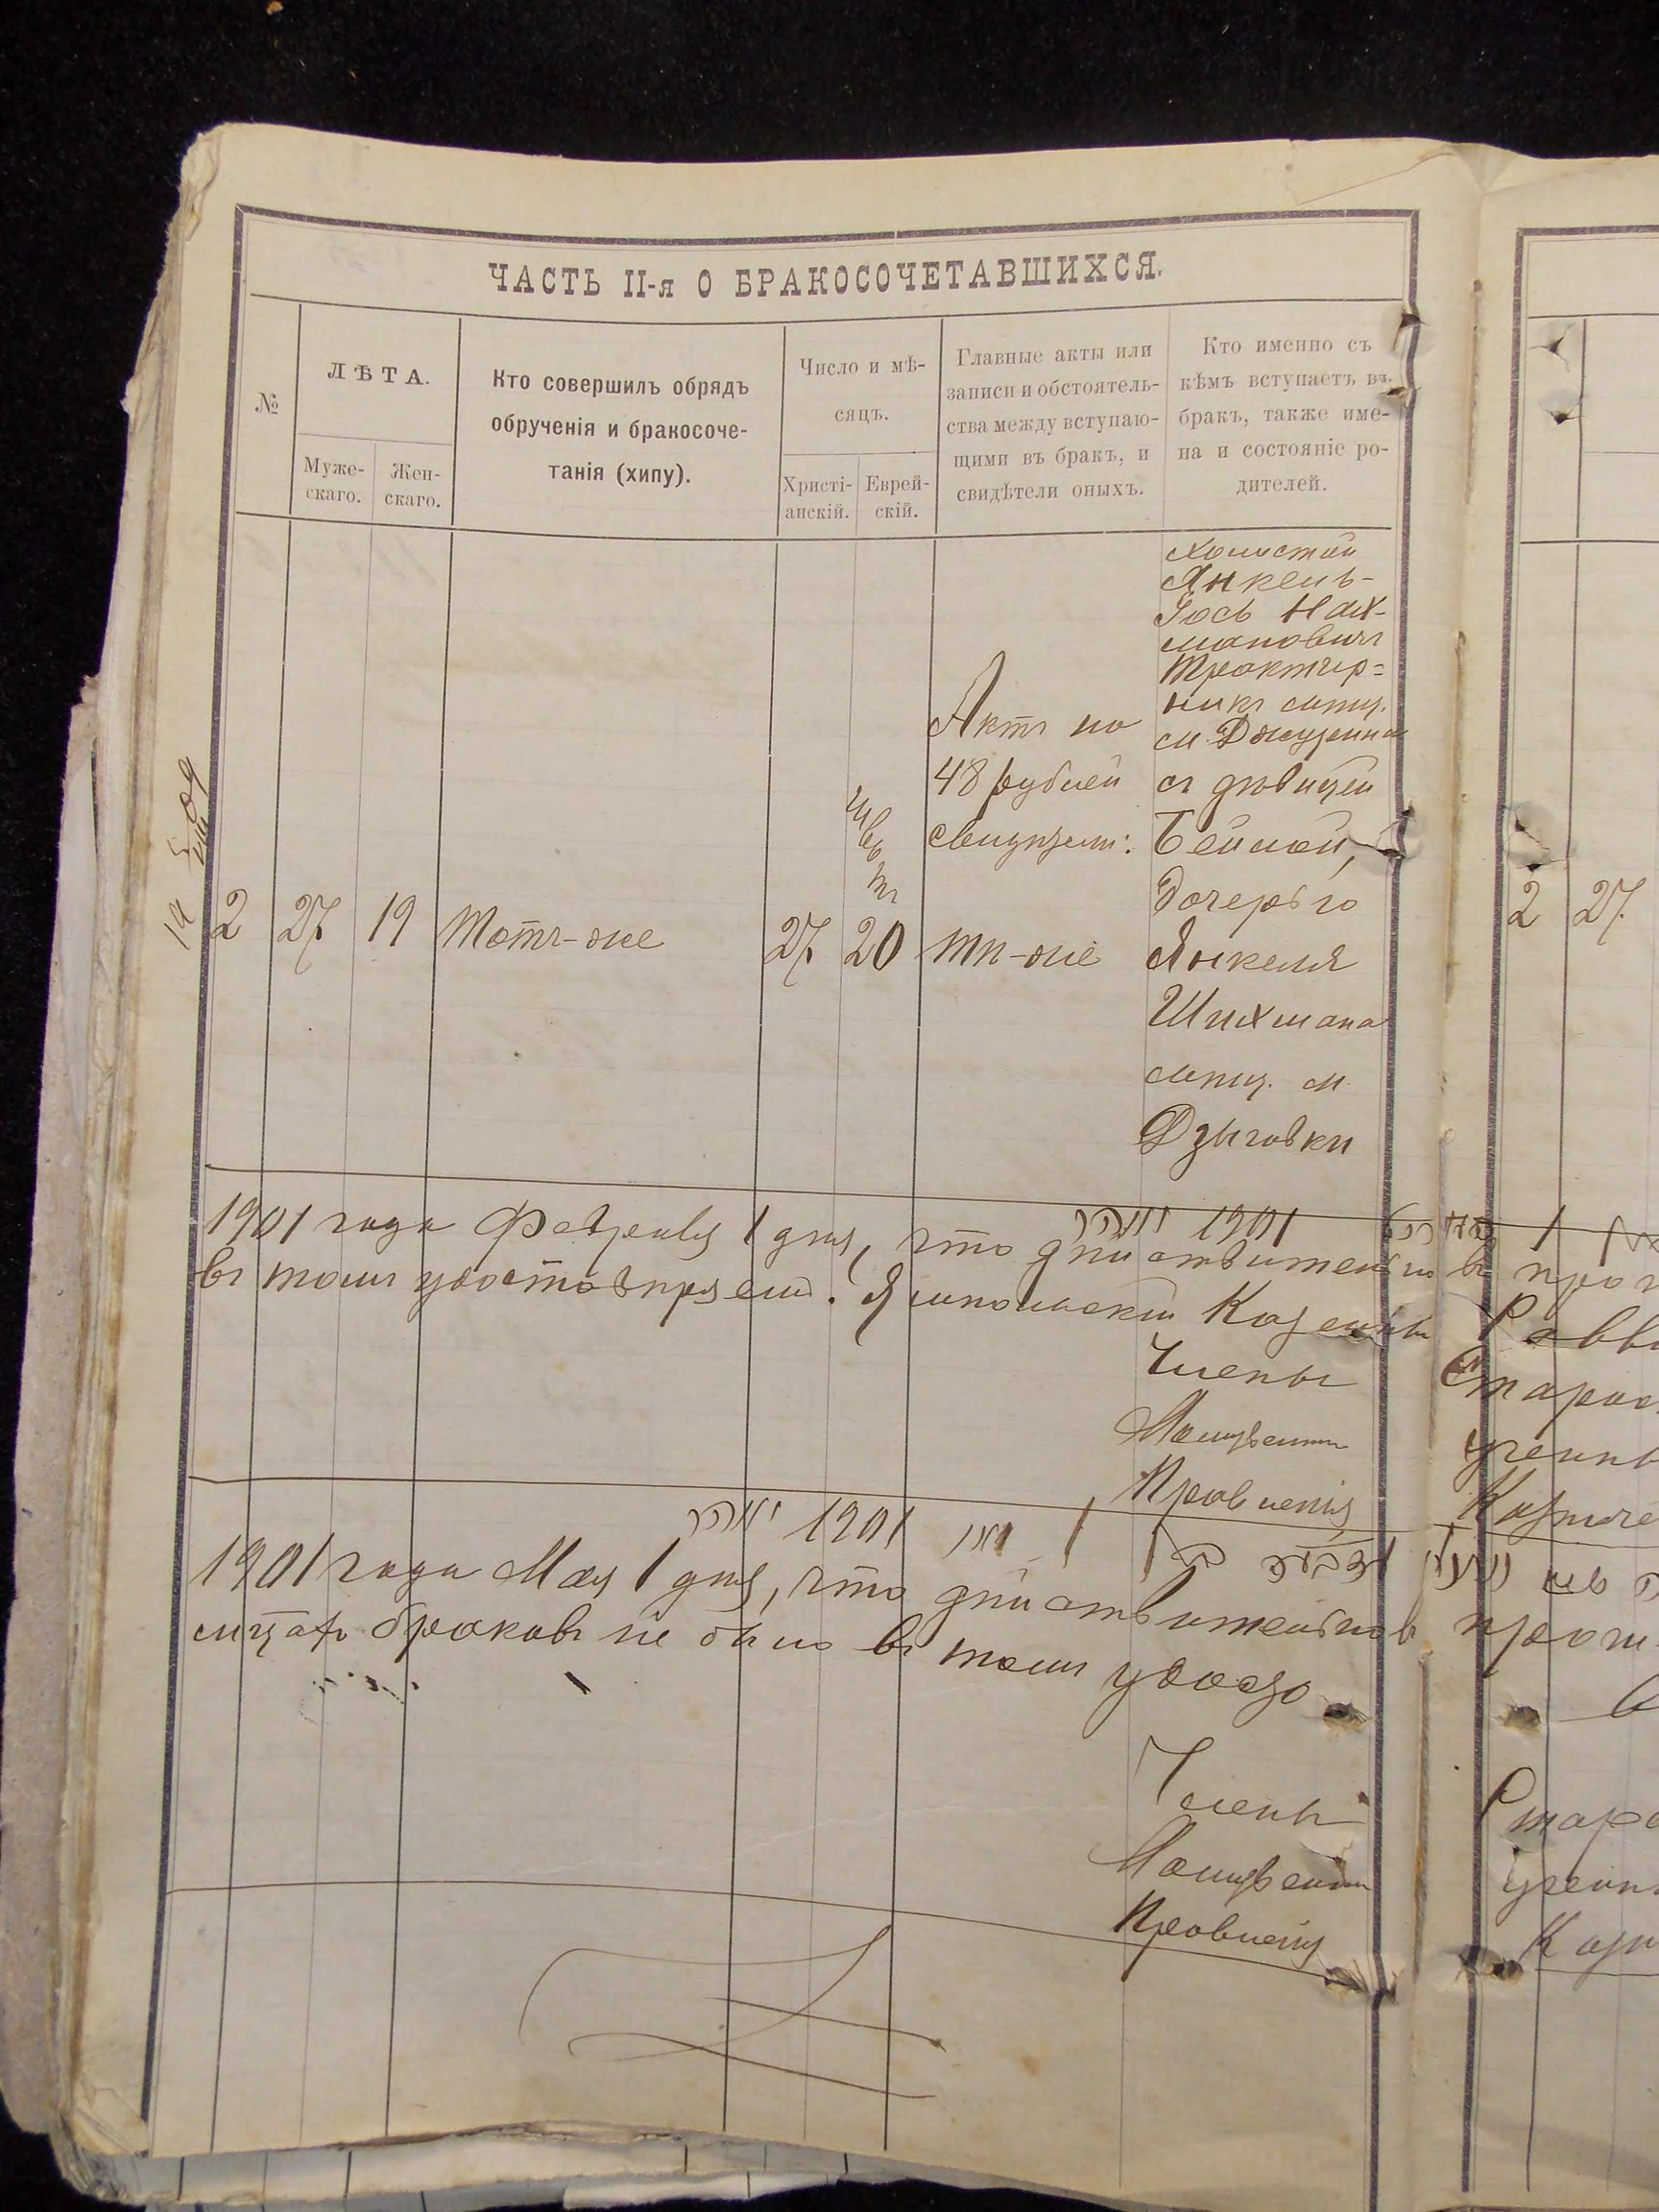 ЧАСТЬ II-я О БРАКОСОЧЕТАВШИХСЯ.
№
ЛѢТА.
Муже-
скаго.
Жен-
скаго.
Кто совершилъ обрядъ
обрученія и бракосоче-
танія (хипу).
Число и мѣ-
сяцъ.
Христі-
анскій.
Еврей-
скій.
Главные акты или
записи и обстоятель-
ства между вступаю-
щими въ бракъ, и
свидѣтели оныхъ.
Кто именно съ
кѣмъ вступаетъ въ
бракъ, также име-
на и состояніе ро-
дителей.
2
27
19
Тотъ-же
27
Шватъ
20
Актъ на
48 рублей
свидѣтели:
тѣ-же
Холостой
Янкель-
Іось Нах-
мановичъ
Трактир-
никъ мѣщ.
м. Джурина
съ дѣвицей
Бейлой,
Дочерью
Янкеля
Шихмана
мѣщ. м.
Дзыговки
1901 года Февраля 1 дня, что дѣйствительно въ
въ томъ удостовѣряемъ. Ямпольскій Казенный
Члены
Молитвеннаго
Правленія
1901 года Мая 1 дня, что дѣйствительно въ
мѣсяцѣ браковъ не было въ томъ удосто
Члены
Молитвеннаго
Правленія
1901
1901
2 27
Старос
учены
Казначе
Старо
Учены
Казн